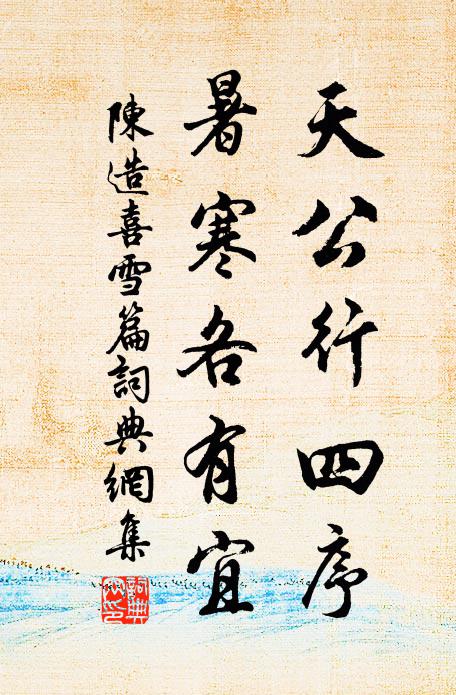 天公行四序
暑寒各有宜
陳造喜雪篇詞典網集